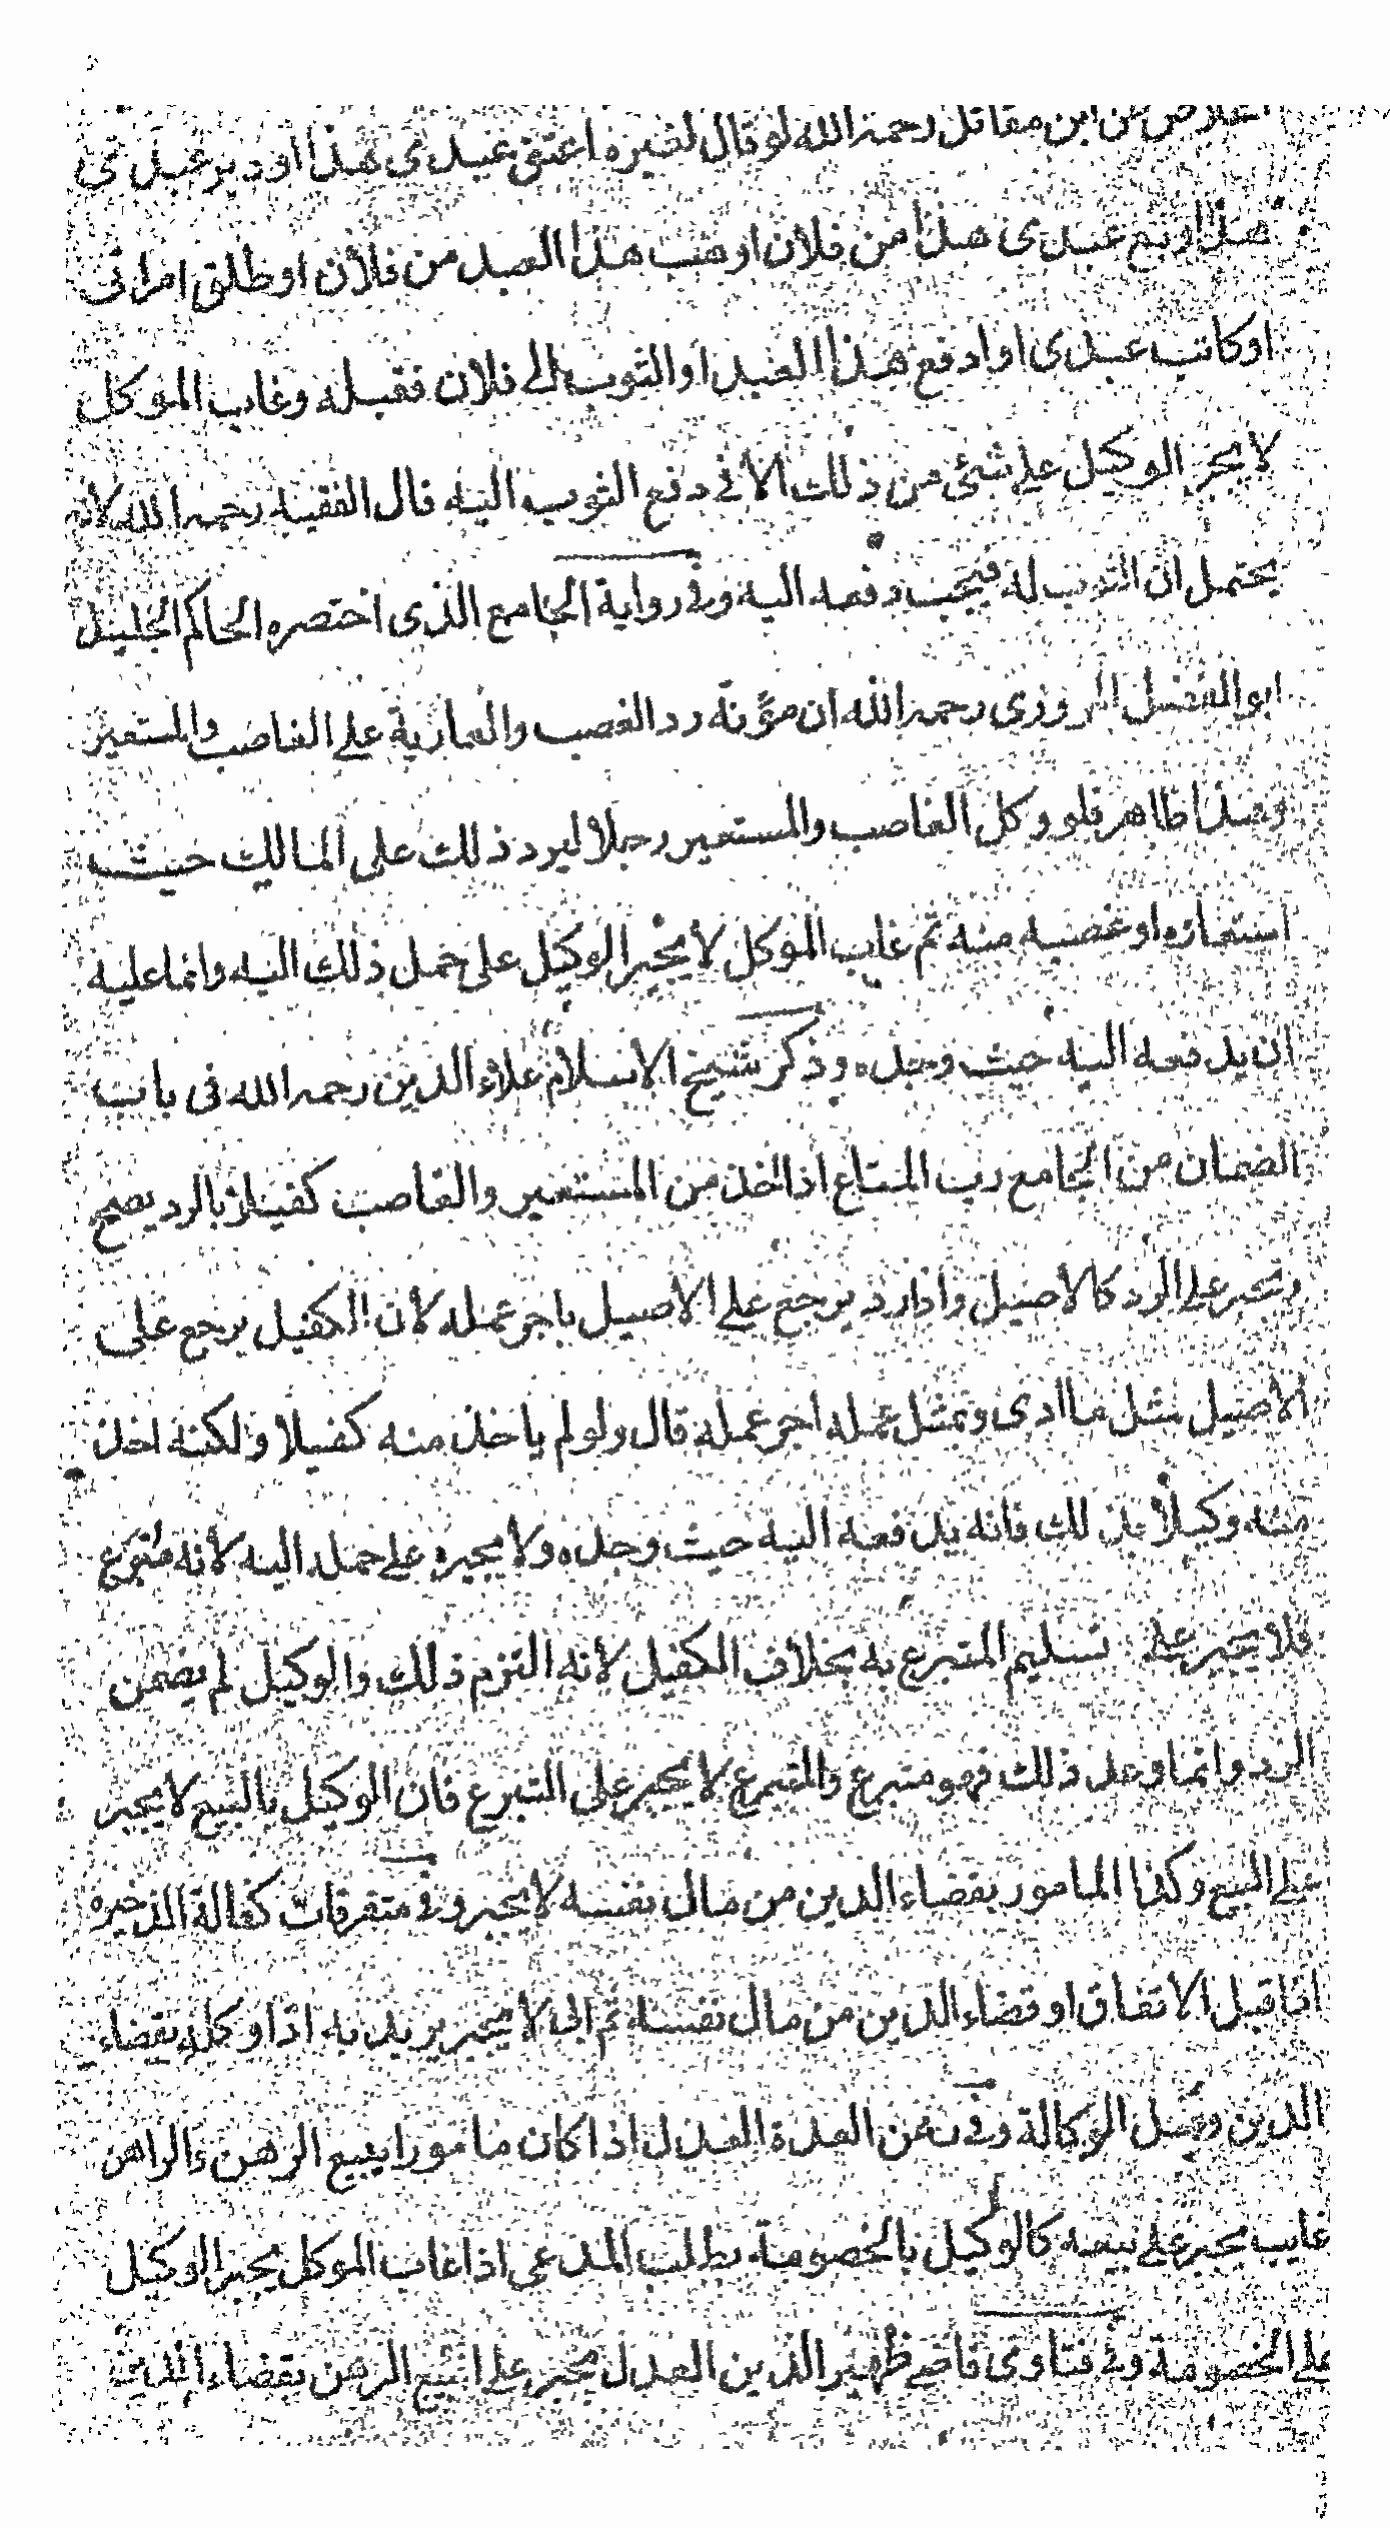 عن ابن مقاتل رحمه الله لو قال لغيره اعتق عبدى هذا او دبر عبدى
هذا او بع عبدى هذا من فلان او هب هذا العبد من فلان او طلق امراتى
او كاتب عبدى او ادفع هذا العبد او الثوب الى فلان فقبله وغاب الموكل
لا يجبر الوكيل على شئ من ذلك الا فى دفع الثوب اليه قال الفقيه رحمه الله لانه
يحتمل ان الثوب له فيجب دفعه اليه وفى رواية الجامع الذى اختصره الحاكم الجليل
ابو الفضل المروزى رحمه الله ان مؤنة رد الغصب والعارية على الغاصب والمستعير
وهذا ظاهر فلو وكل الغاصب والمستعير رجلا ليرد ذلك على المالك حيث
استعاره او غصبه منه ثم غاب الموكل لا يجبر الوكيل على حمل ذلك اليه وانما عليه
ان يدفعه اليه حيث وجده وذكر شيخ الاسلام علاء الدين رحمه الله فى باب
الضمان من الجامع رب المتاع اذا اخذ من المستعير والغاصب كفيلا بالرد يصح
ويجبر على الرد كالاصيل واذا رد يرجع على الاصيل باجر عمله لان الكفيل يرجع على
الاصيل بمثل ما ادى وبمثل عمله اجر عمله قال ولو لم ياخذ منه كفيلا ولكنه اخذ
منه وكيلا بذلك فانه يدفعه اليه حيث وجده ولا يجبره على حمله اليه لانه متبرع
فلا يجبر على تسليم المتبرع به بخلاف الكفيل لانه التزم ذلك والوكيل لم يضمن
الرد وانما وعد ذلك فهو متبرع والمتبرع لا يجبر على التبرع فان الوكيل بالبيع لا يجبر
على البيع وكذا المامور بقضاء الدين من مال نفسه لا يجبر وفى متفرقات كفالة الذخيره
اذا قبل الانفاق او قضاء الدين من مال نفسه ثم ابى لا يجبر يريد به اذا وكله بقضاء
الدين وقبل الوكالة وفى رهن العدة العدل اذا كان مامورا ببيع الرهن والراهن
غايب يجبر على بيعه كالوكيل بالخصومة بطلب المدعى اذا غاب الموكل يجبر الوكيل
على الخصومة وفى فتاوى قاضى ظهير الدين العدل يجبر على بيع الرهن بقضاء الدين